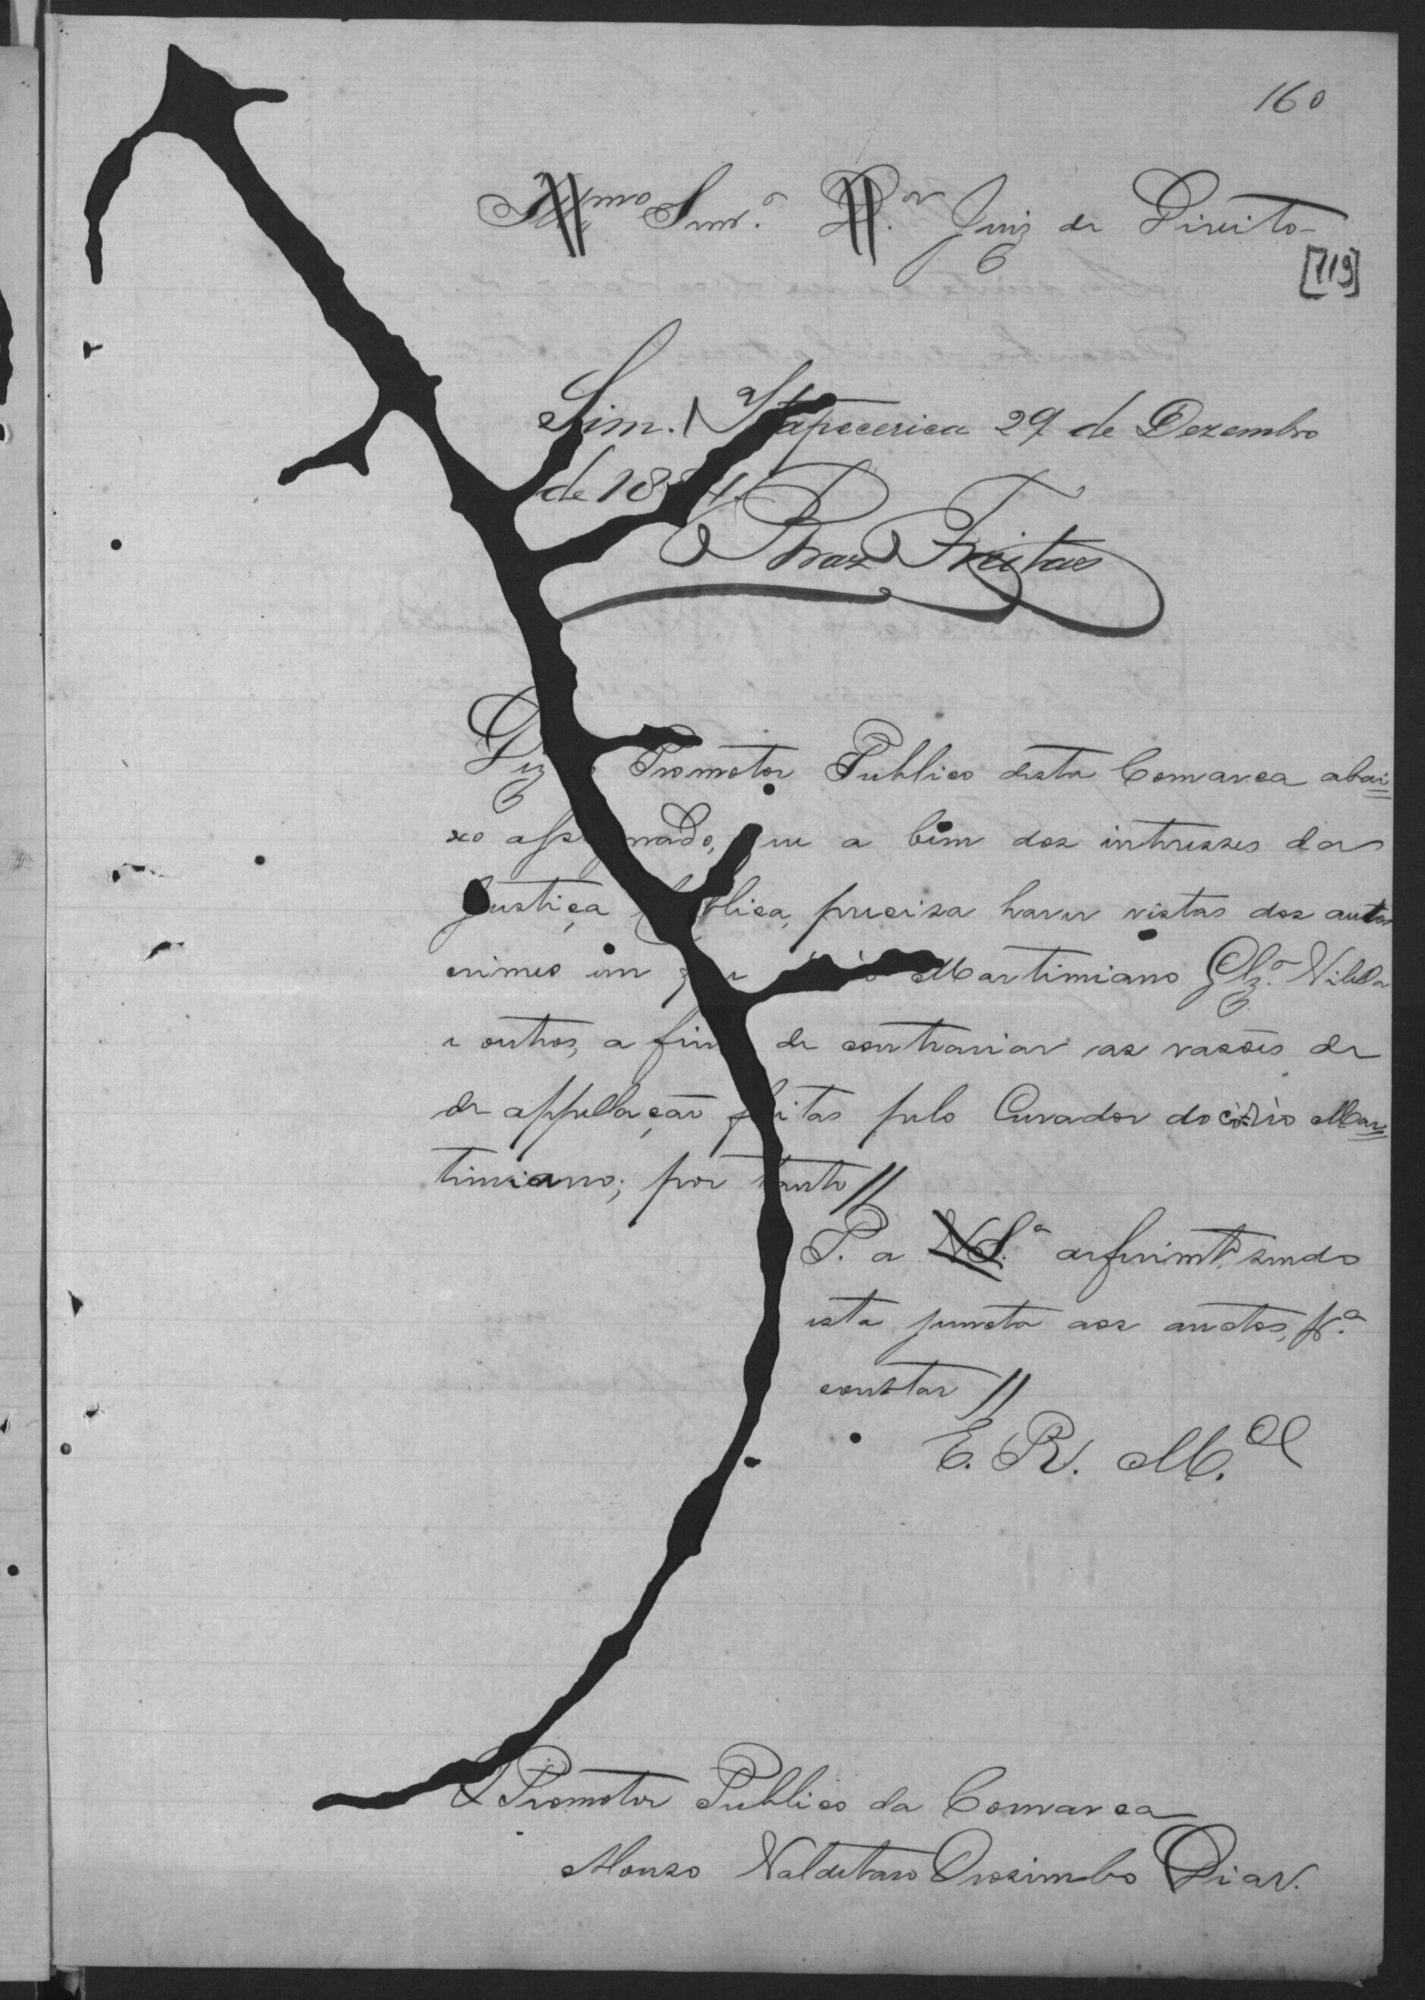 160
Illmo Snr.º Dr. Juiz de Direito
[119]
Sim. Itapecerica 29 de Dezembro
de 1894.
Braz Freitas
Diz o Promotor Publico desta Comarca abai=
xo assignado, que a bem dos intresses da
Justiça publica, precisa haver vistas dos autos
crimes em que Martimiano Glz.ª Vilela
e outros, a fim de contrariar as rasões de
de appellação feitas pelo Curador do réo Mar=
timiano; por tanto //
P. a V. S.ª deferimt.º sendo
esta juncta aos auctos, p.ª
constar //
E. R. M.ce
O Promotor Publico da Comarca
Alonso Valdetaro Orosimbo Dias.